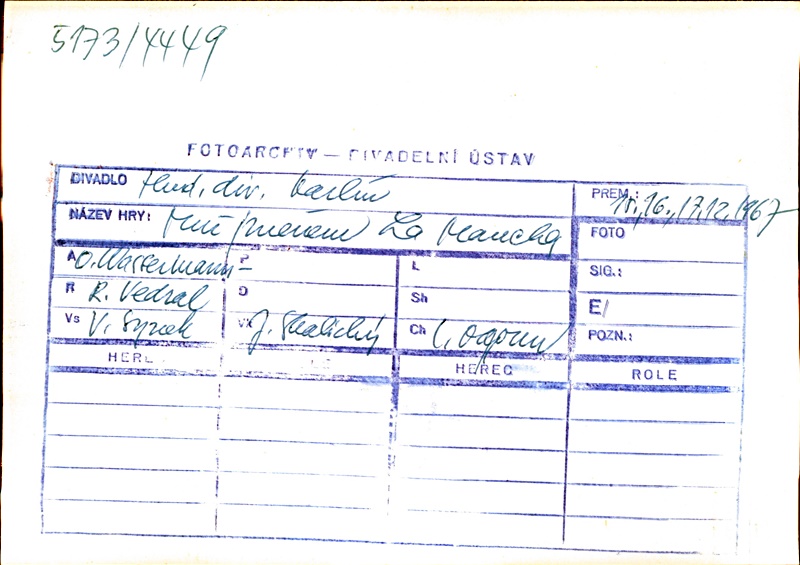 5173/4449
FOTOARCHIV — DIVADELNÍ ÚSTAV
DIVADLO Hud. div. Karlín
PREM.: 15., 16., 17.12.1967
NÁZEV HRY: Muž jménem La Mancha
FOTO
A D. Wassermann- P L
SIG.:
R R. Vedral D Sh
E/
Vs V. Synek VK J. Skalický Ch
POZN.:
HEREC ROLE